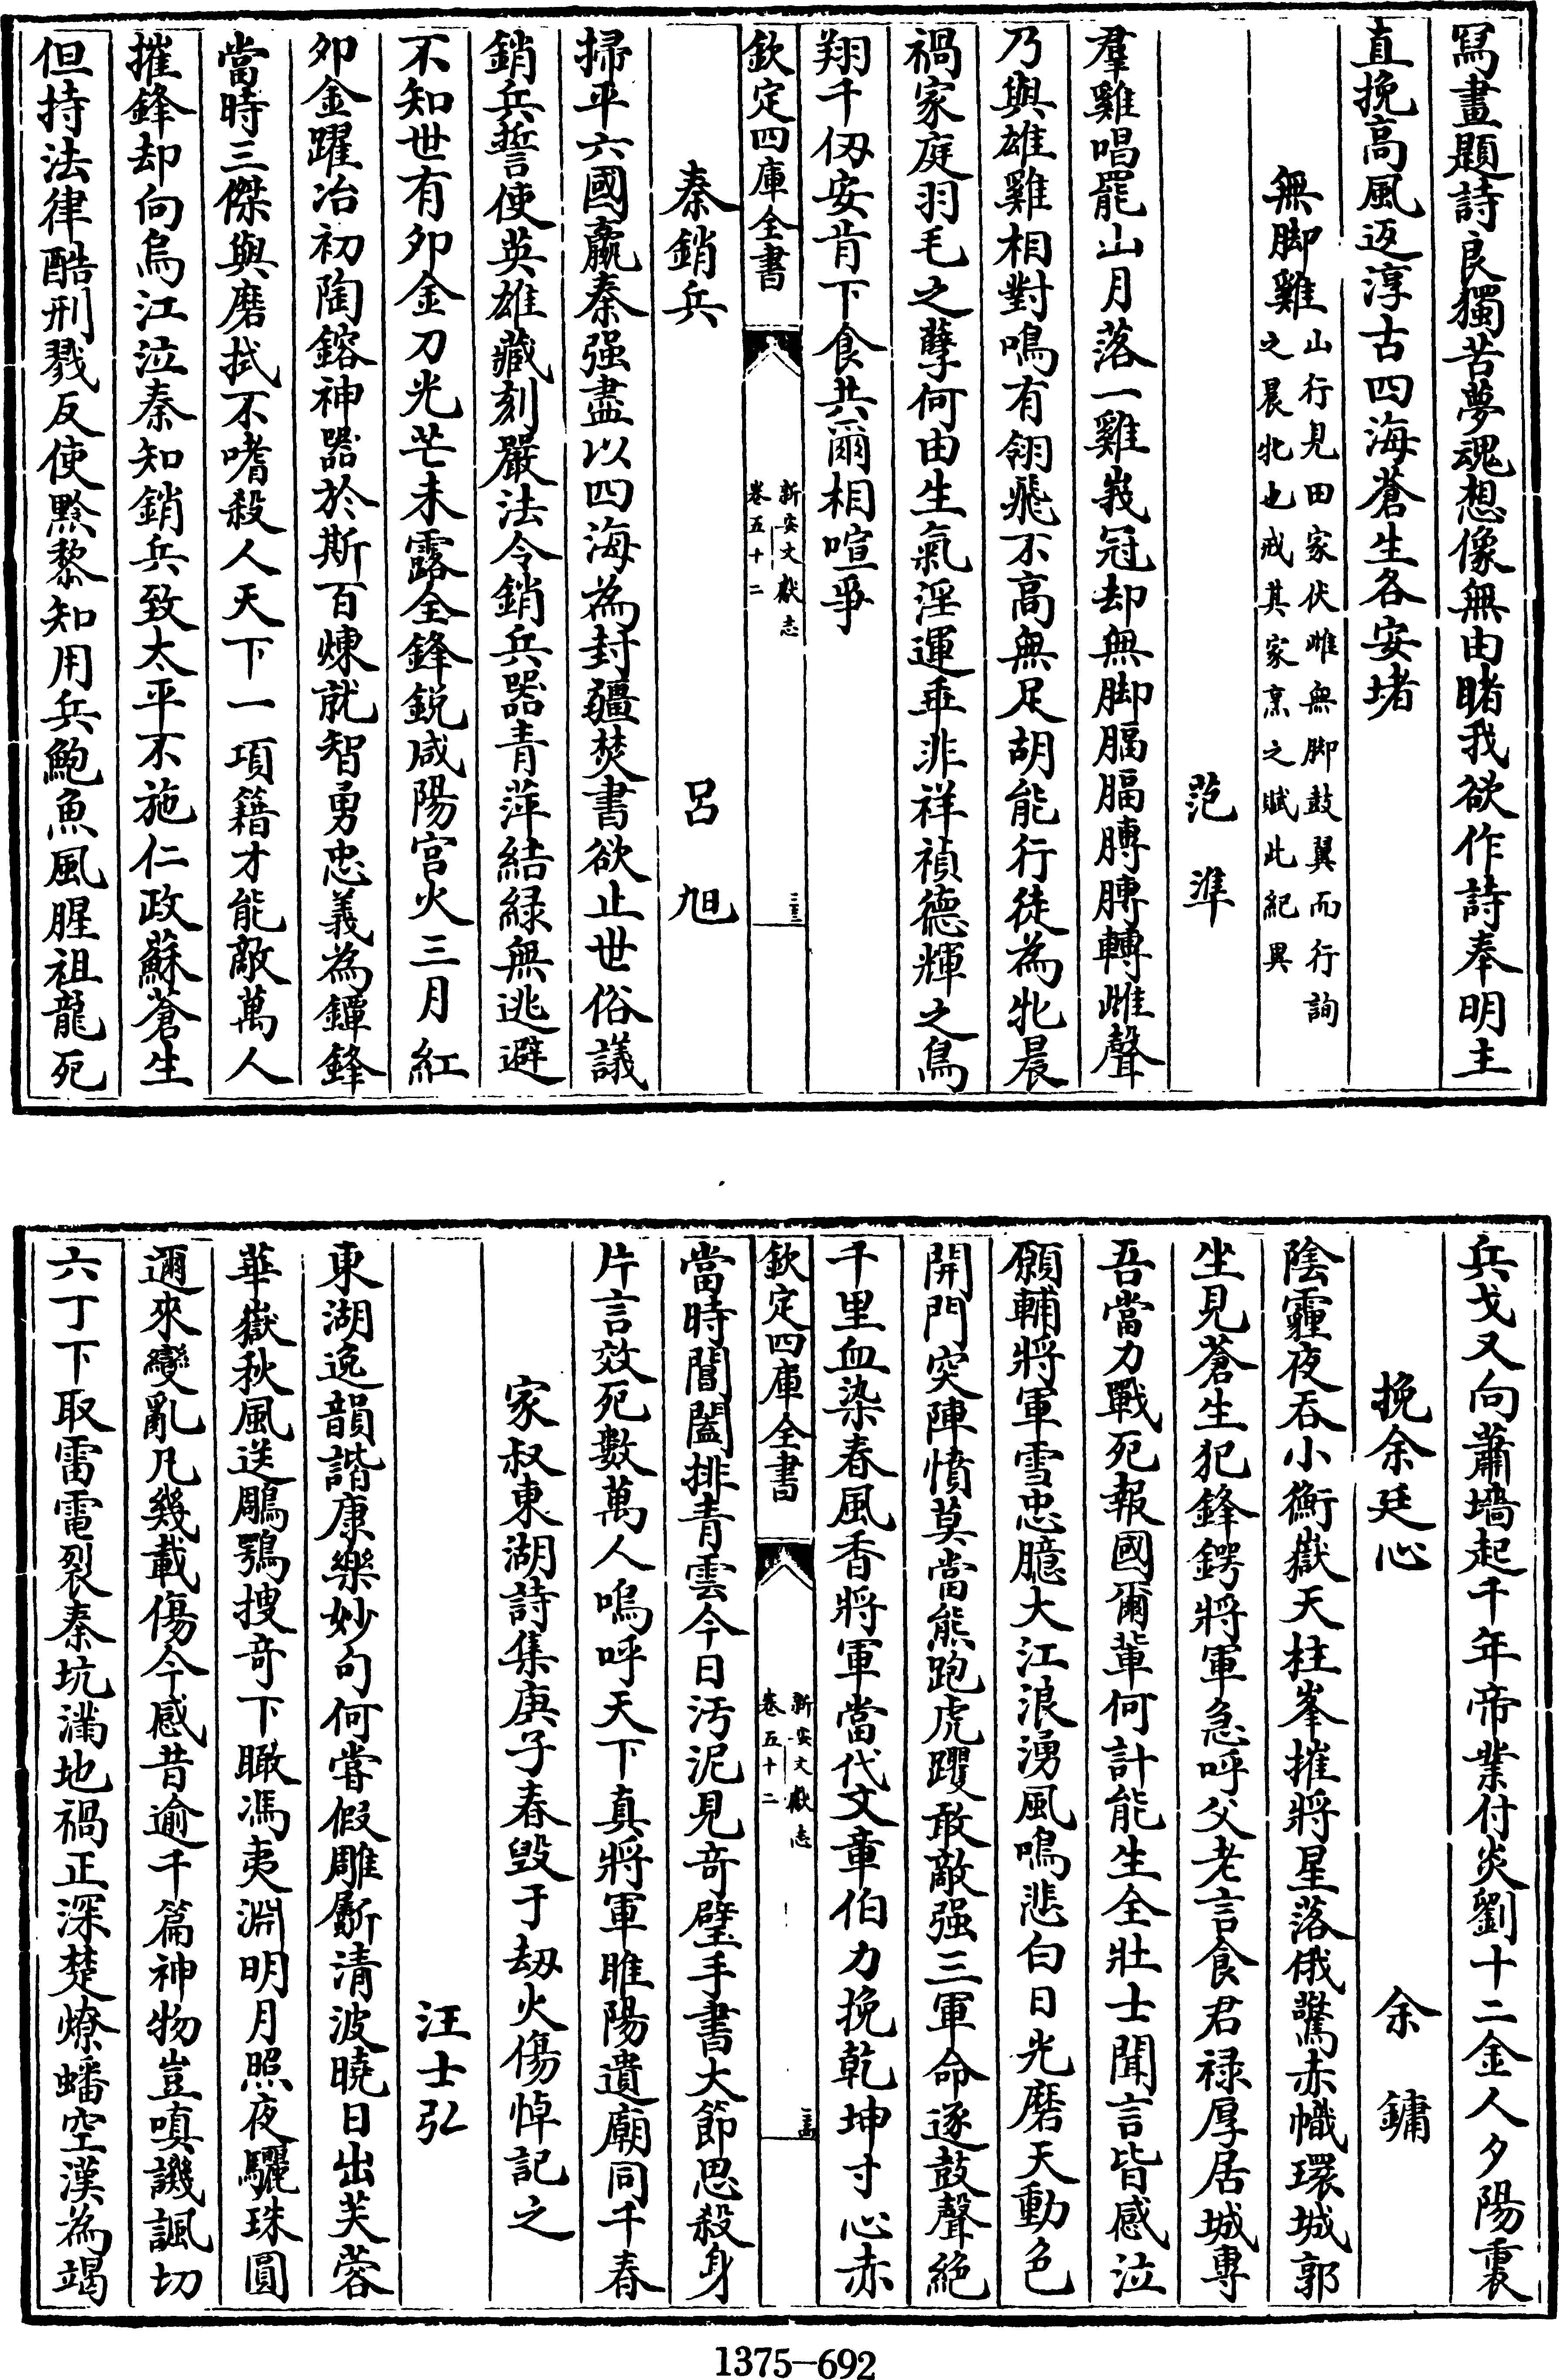 冩畫題詩良獨苦夢魂想像無由睹我欲作詩奉明主
直挽高風返淳古四海蒼生各安堵
無脚雞山行見田家伏雌無脚鼓翼而行詢
之晨牝也戒其家烹之賦此紀異
范準
羣雞唱罷山月落一雞峩冠却無脚膈膈膊膊轉雌聲
乃與雄雞相對鳴有翎飛不高無足胡能行徒為牝晨
禍家庭羽毛之孽何由生氣淫運乖非祥禎德輝之鳥
翔千仭安肯下食共爾相喧爭
欽定四庫全書
新安文獻志
卷五十二
秦銷兵
呂旭
掃平六國嬴秦强盡以四海為封疆焚書欲止世俗議
銷兵誓使英雄藏刻嚴法令銷兵器青萍結緑無逃避
不知世有夘金刀光芒未露全鋒鋭咸陽宫火三月紅
夘金躍冶初陶鎔神器於斯百煉就智勇忠義為鐔鋒
當時三傑與磨拭不嗜殺人天下一項籍才能敵萬人
摧鋒却向烏江泣秦知銷兵致太平不施仁政蘇蒼生
但持法律酷刑戮反使黔黎知用兵鮑魚風腥祖龍死
兵戈又向蕭墻起千年帝業付炎劉十二金人夕陽裏
挽余廷心
余鏞
陰霾夜吞小衡嶽天柱峯摧將星落俄驚赤幟環城郭
坐見蒼生犯鋒鍔將軍急呼父老言食君禄厚居城專
吾當力戰死報國爾軰何計能生全壯士聞言皆感泣
願輔將軍雪忠臆大江浪湧風鳴悲白日光磨天動色
開門突陣憤莫當熊跑虎躩敢敵强三軍命逐鼓聲絶
千里血染春風香將軍當代文章伯力挽乾坤寸心赤
欽定四庫全書
新安文獻志
卷五十二
當時閶闔排青雲今日汚泥見奇璧手書大節思殺身
片言效死數萬人嗚呼天下真將軍睢陽遺廟同千春
家叔東湖詩集庚子春毁于刼火傷悼記之
汪士弘
東湖逸韻諧康樂妙句何甞假雕斵清波曉日出芙蓉
華嶽秋風送鵰鶚搜奇下瞰馮夷淵明月照夜驪珠圓
邇來變亂凡幾載傷今感昔逾千篇神物豈嗔譏諷切
六丁下取雷電裂秦坑滿地禍正深楚燎蟠空漢為竭
1375-692